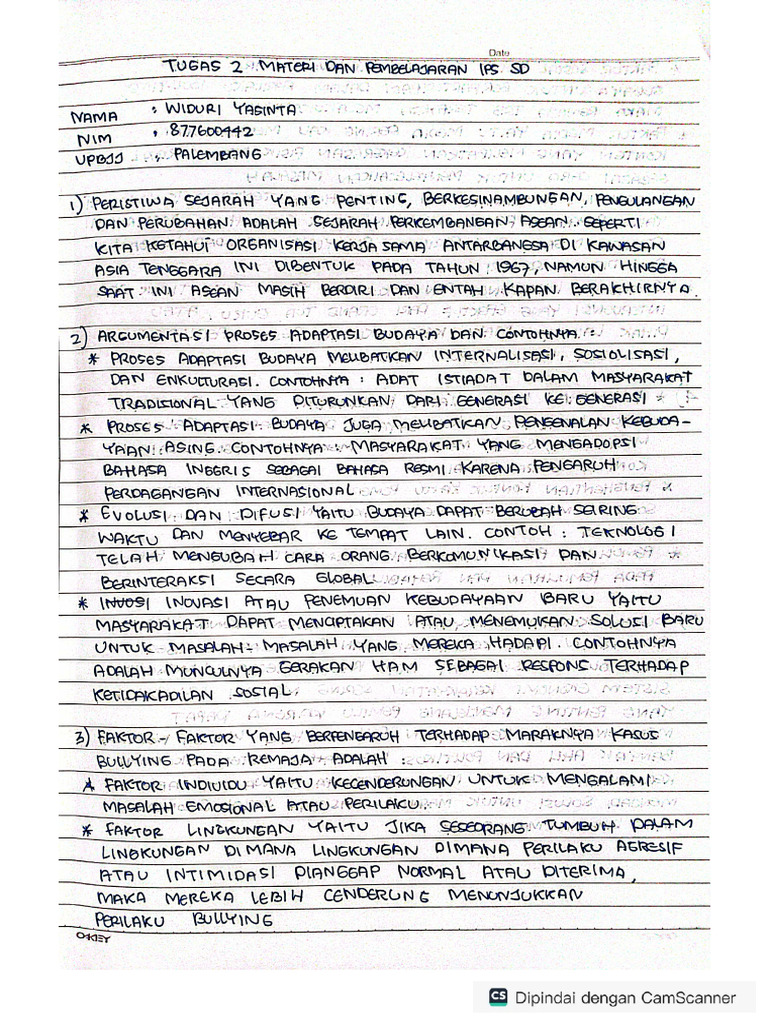 Date
TUGAS 2 MATERI DAN PEMBELAJARAN IPS SD
NAMA : WIDURI YASINTA
NIM : 877600442
UPBJJ : PALEMBANG
1) PERISTIWA SEJARAH YANG PENTING, BERKESINAMBUNGAN, PENGULANGAN
DAN PERUBAHAN ADALAH SEJARAH PERKEMBANGAN ASEAN. SEPERTI
KITA KETAHUI ORGANISASI KERJA SAMA ANTARBANGSA DI KAWASAN
ASIA TENGGARA INI DIBENTUK PADA TAHUN 1967, NAMUN HINGGA
SAAT INI ASEAN MASIH BERDIRI DAN ENTAH KAPAN BERAKHIRNYA.
2) ARGUMENTASI PROSES ADAPTASI BUDAYA DAN CONTOHNYA :
* PROSES ADAPTASI BUDAYA MELIBATKAN INTERNALISASI, SOSIOLISASI,
DAN ENKULTURASI. CONTOHNYA : ADAT ISTIADAT DALAM MASYARAKAT
TRADISIONAL YANG DITURUNKAN DARI GENERASI KE GENERASI
* PROSES ADAPTASI BUDAYA JUGA MELIBATKAN PENGENALAN KEBUDA-
YAAN ASING. CONTOHNYA MASYARAKAT YANG MENGADOPSI
BAHASA INGGRIS SEBAGAI BAHASA RESMI KARENA PENGARUH
PERDAGANGAN INTERNASIONAL
* EVOLUSI DAN DIFUSI YAITU BUDAYA DAPAT BERUBAH SEIRING
WAKTU DAN MENYEBAR KE TEMPAT LAIN. CONTOH : TEKNOLOGI
TELAH MENGUBAH CARA ORANG BERKOMUNIKASI DAN
BERINTERAKSI SECARA GLOBAL
* INOVASI ATAU PENEMUAN KEBUDAYAAN BARU YAITU
MASYARAKAT DAPAT MENCIPTAKAN ATAU MENEMUKAN SOLUSI BARU
UNTUK MASALAH-MASALAH YANG MEREKA HADAPI. CONTOHNYA
ADALAH MUNCULNYA GERAKAN HAM SEBAGAI RESPONS TERHADAP
KETIDAKADILAN SOSIAL
3) FAKTOR-FAKTOR YANG BERPENGARUH TERHADAP MARAKNYA KASUS
BULLYING PADA REMAJA ADALAH :
* FAKTOR INDIVIDU YAITU KECENDERUNGAN UNTUK MENGALAMI
MASALAH EMOSIONAL ATAU PERILAKU.
* FAKTOR LINGKUNGAN YAITU JIKA SESEORANG TUMBUH DALAM
LINGKUNGAN DIMANA LINGKUNGAN DIMANA PERILAKU AGRESIF
ATAU INTIMIDASI DIANGGAP NORMAL ATAU DITERIMA,
MAKA MEREKA LEBIH CENDERUNG MENUNJUKKAN
PERILAKU BULLYING
OKEY
CS Dipindai dengan CamScanner